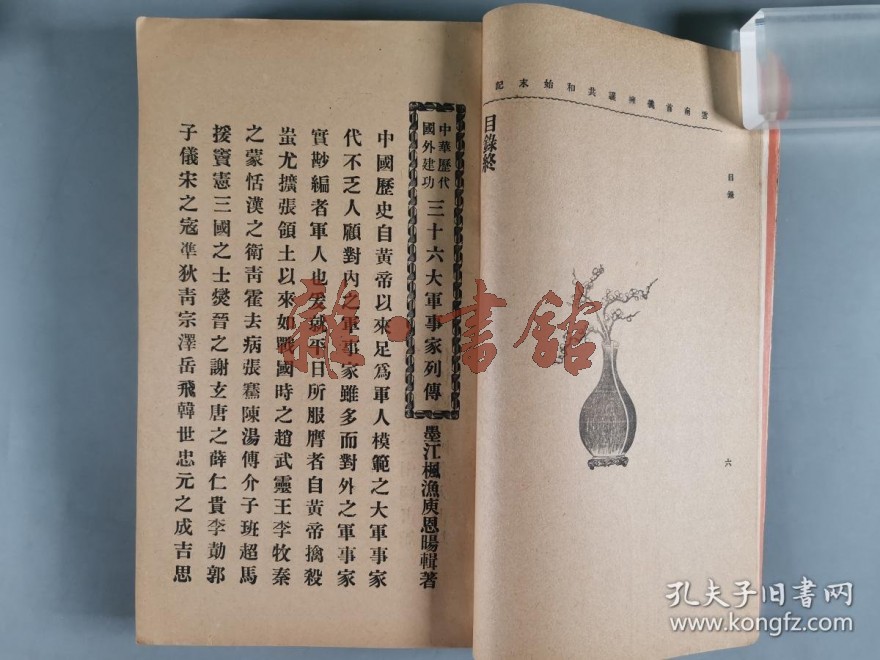 雲南首義擁護共和始末記
目錄
六
目錄終
中華歷代
國外建功
三十六大軍事家列傳
墨江楓漁庾恩暘輯著
中國歷史自黃帝以來足爲軍人模範之大軍事家
代不乏人顧對內之軍事家雖多而對外之軍事家
實尠編者軍人也爰就平日所服膺者自黃帝擒殺
蚩尤擴張領土以來如戰國時之趙武靈王李牧秦
之蒙恬漢之衛靑霍去病張騫陳湯傅介子班超馬
援竇憲三國之士燮晉之謝玄唐之薛仁貴李勣郭
子儀宋之寇準狄靑宗澤岳飛韓世忠元之成吉思
雜·書館
孔夫子旧书网
www.kongfz.com